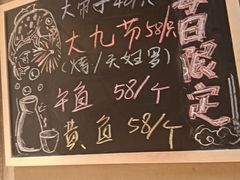 大九节 58/只
(烤/天妇罗)
午鱼 58/个
黄鱼 58/个
每日限定